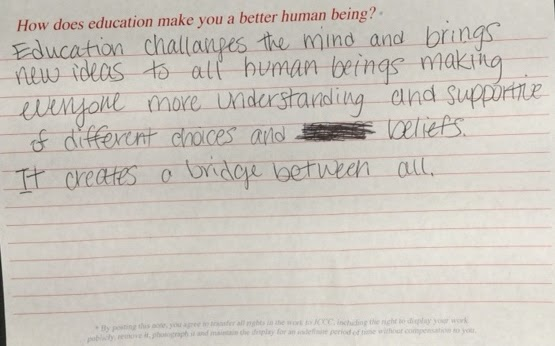 How does education make you a better human being? *
Education challanges the mind and brings
new ideas to all human beings making
everyone more understanding and supportive
of different choices and beliefs.
It creates a bridge between all.
* By posting this note, you agree to transfer all rights in the work to JCCC, including the right to display your work
publicly, remove it, photograph it and maintain the display for an indefinite period of time without compensation to you.